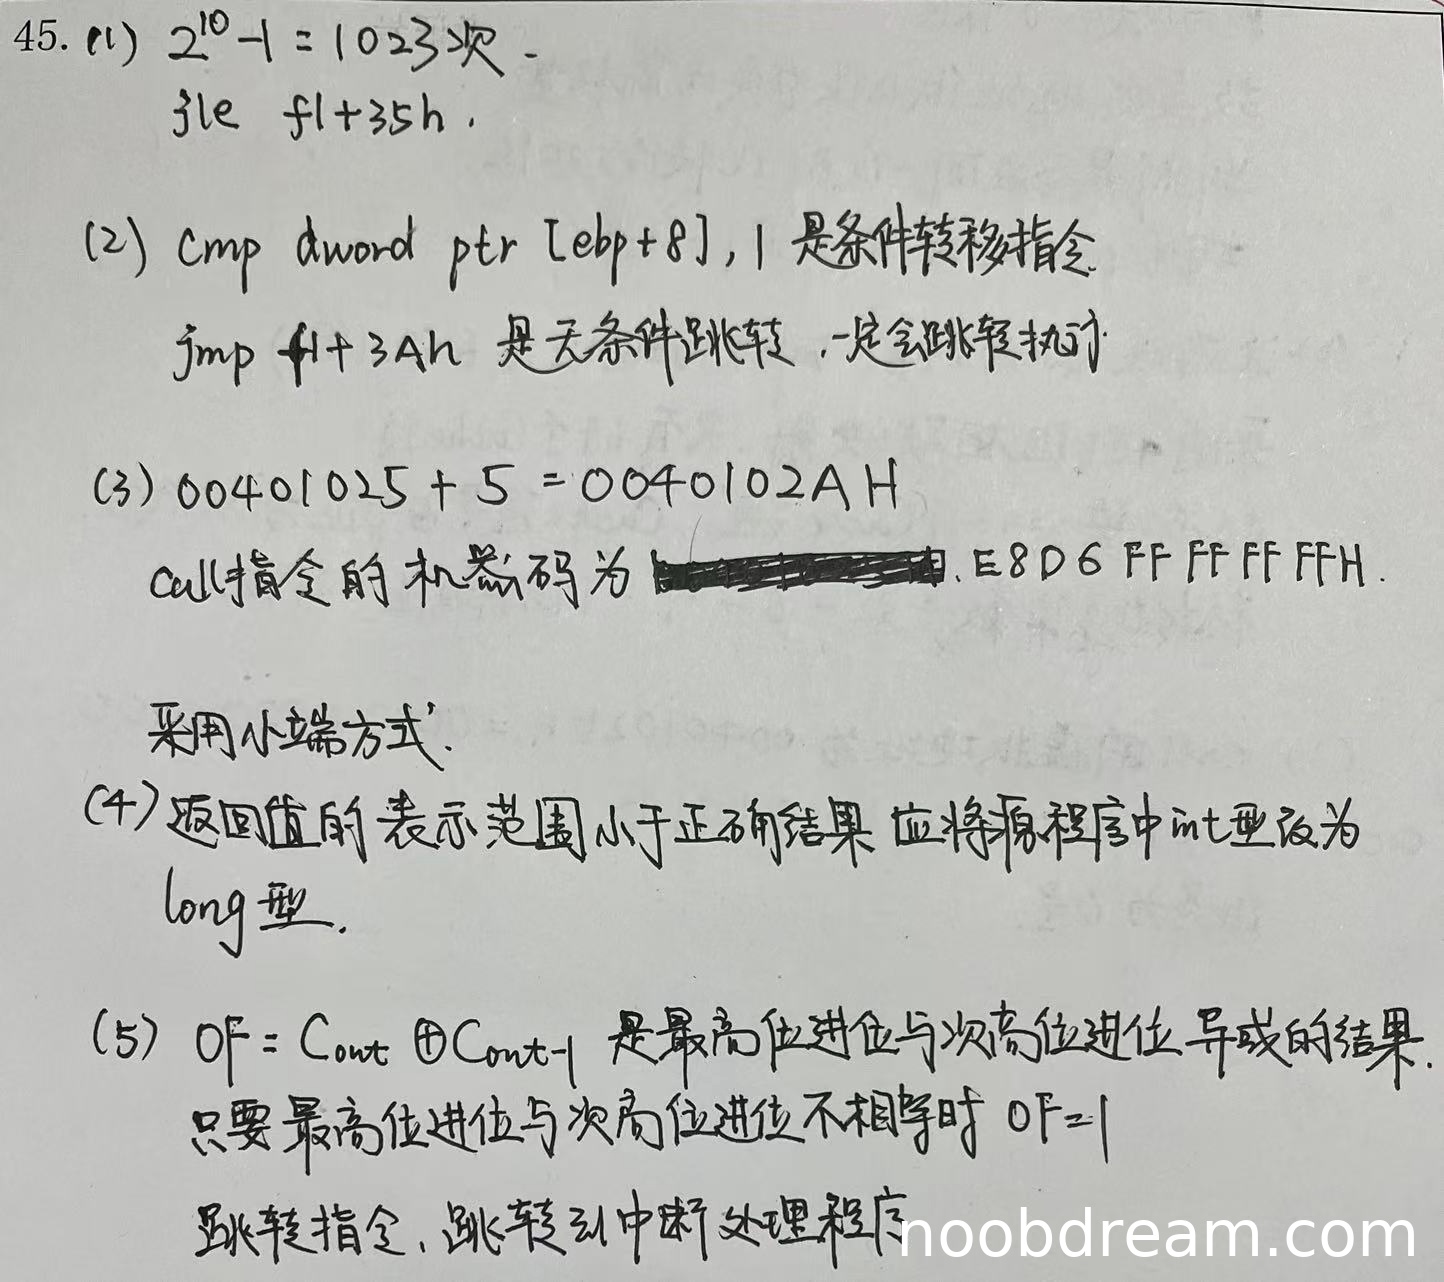 45. (1) 2¹⁰-1 = 1023次.
jle f1+35h.
(2) cmp dword ptr [ebp+8], 1 是条件转移指令.
jmp f1+3Ah 是无条件跳转,一定会跳转执行
(3) 00401025 + 5 = 0040102AH
call指令的机器码为 E8D6 FF FF FF FFH.
采用小端方式.
(4) 返回值的表示范围小于正确结果 应将源程序中int型改为
long型.
(5) OF = Cout ⊕ Cout-1 是最高位进位与次高位进位异或的结果.
只要最高位进位与次高位进位不相等时 OF=1
跳转指令,跳转到中断处理程序
noobdream.com